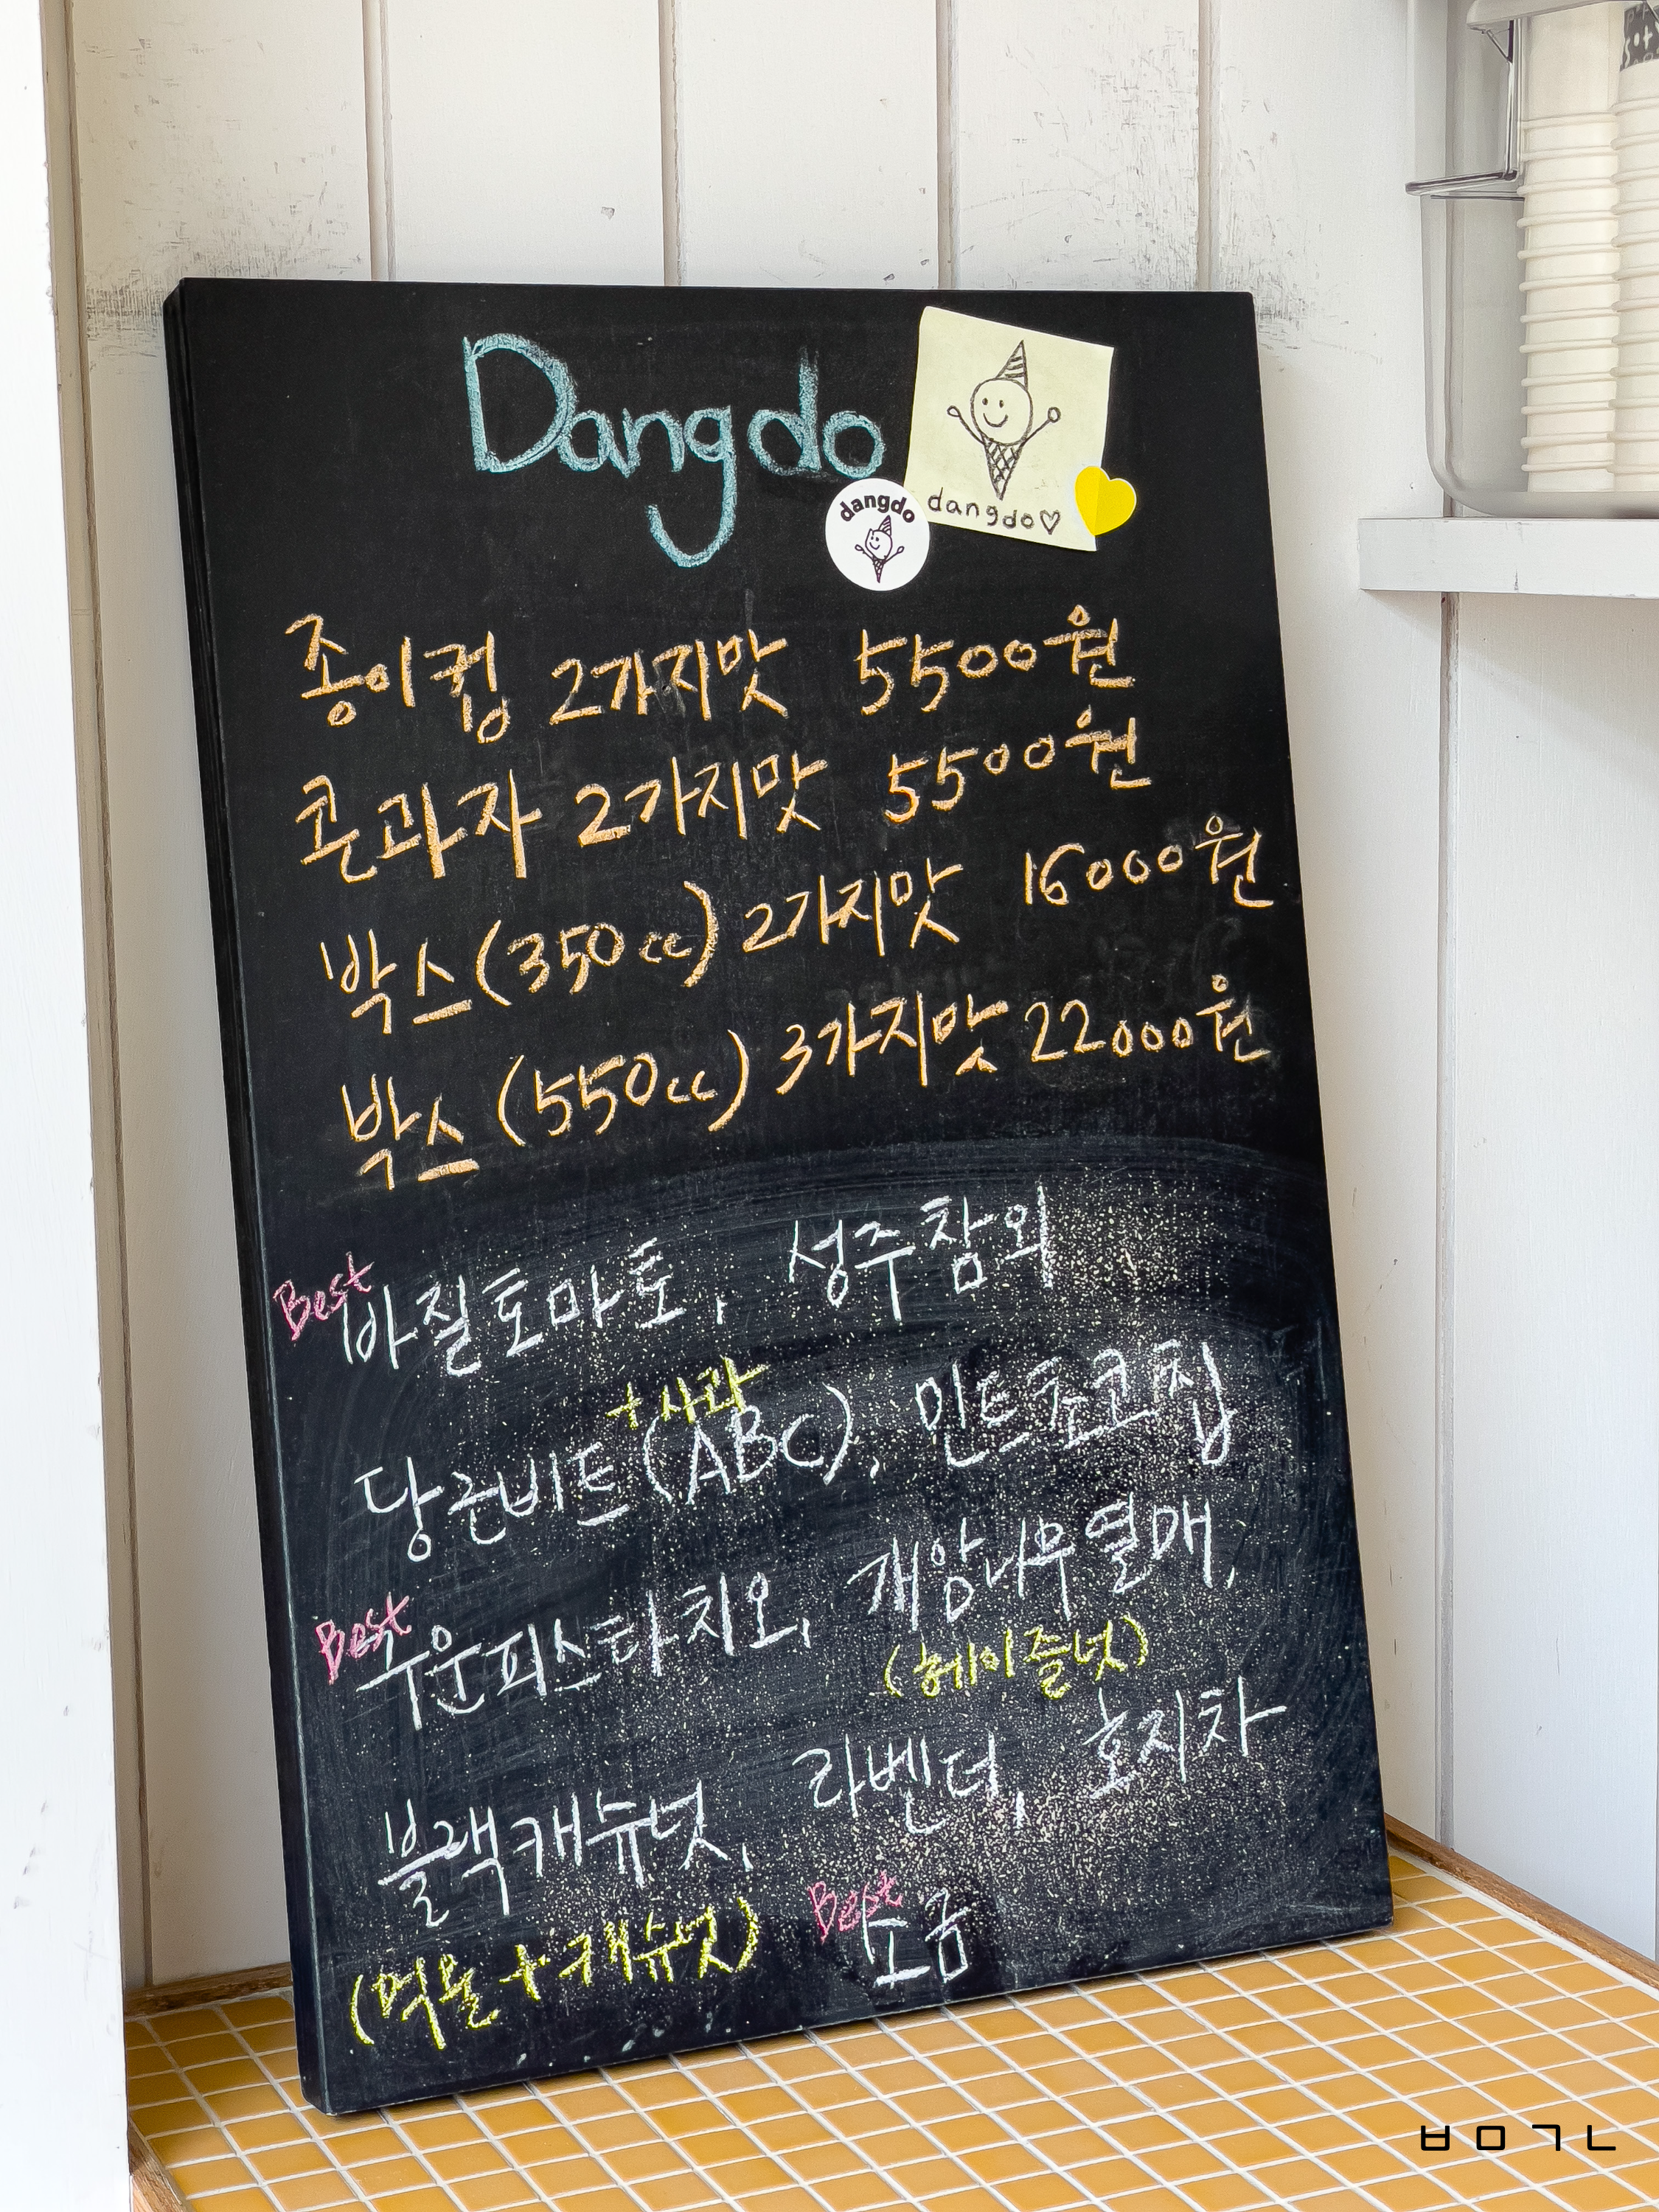 Dangdo
dangdo♡
dangdo
종이컵 2가지맛 5500원
콘과자 2가지맛 5500원
박스(350cc) 2가지맛 16000원
박스(550cc) 3가지맛 22000원
Best
바질토마토, 성주참외
+사과
당근비트(ABC), 민트쵸코칩
Best
구운피스타치오, 개암나무열매,
(헤이즐넛)
블랙캐슈넛, 라벤더, 호지차
Best
(먹물+캐슈넛) 소금
ㅂㅁㄱㄴ